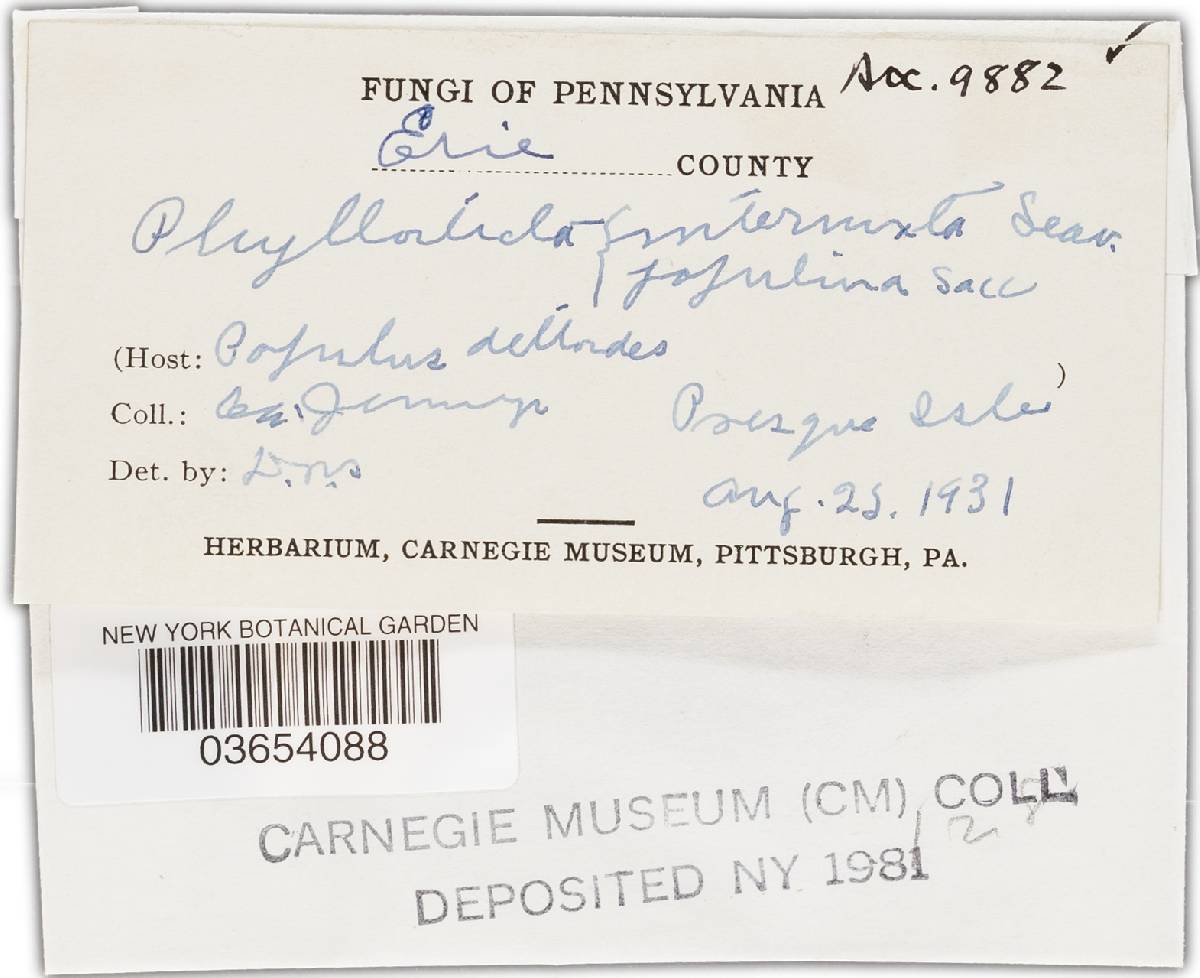 Acc. 9882
FUNGI OF PENNSYLVANIA
Erie COUNTY
Phyllosticta { intermixta Seav.
populina Sacc
(Host: Populus deltoides )
Coll.: Jennings Presque Isle
Det. by: Aug. 25, 1931
HERBARIUM, CARNEGIE MUSEUM, PITTSBURGH, PA.
NEW YORK BOTANICAL GARDEN
03654088
CARNEGIE MUSEUM (CM) COLL
DEPOSITED NY 1981